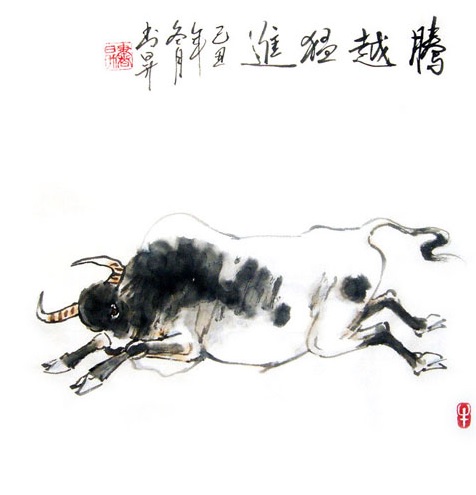 騰越猛進
己丑
年
冬月
书昇